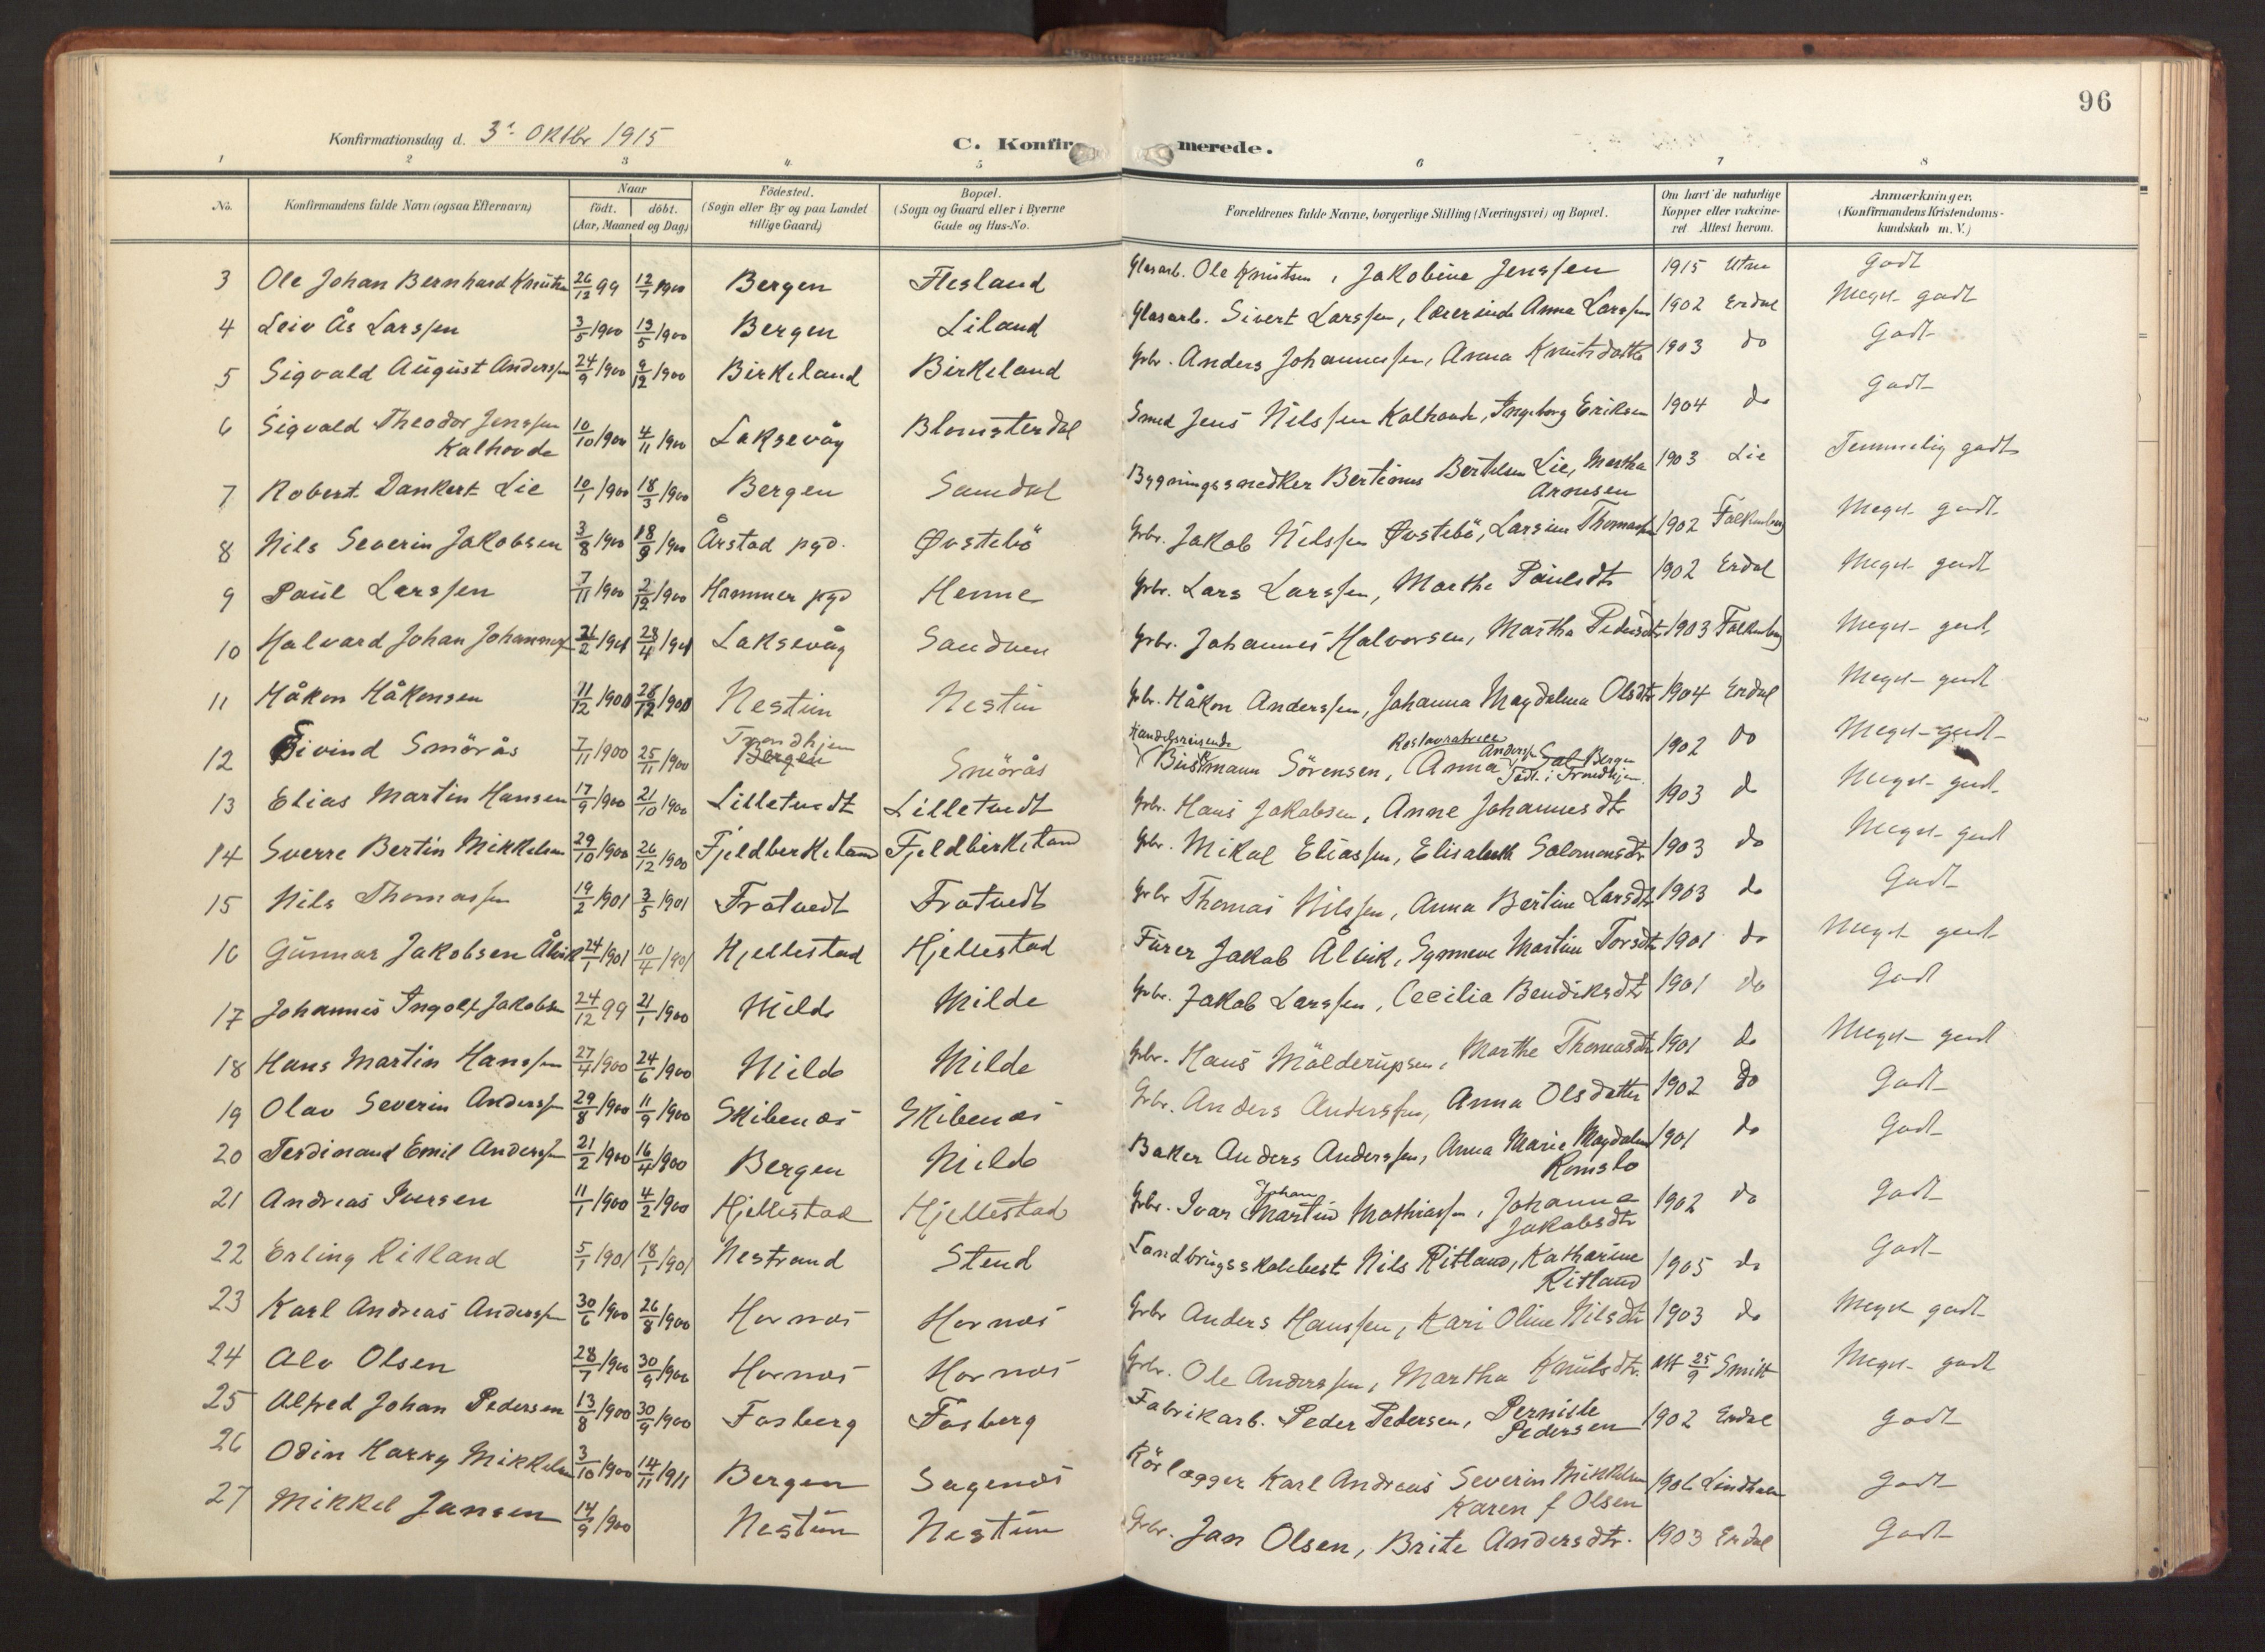 96
Konfirmationsdag d. 3. Oktbr 1915
C. Konfirmerede.
1 2 3 4. 5 6 7 8
No.
Konfirmandens fulde Navn (ogsaa Efternavn)
Naar
födt. döbt.
(Aar, Maaned og Dag)
Födested.
(Sogn eller By og paa Landet
tillige Gaard)
Bopæl.
(Sogn og Gaard eller i Byerne
Gade og Hus-No.
Forældrenes fulde Navne, borgerlige Stilling (Næringsvei) og Bopæl.
Om havt de naturlige
Kopper eller vakcine-
ret. Attest herom.
Anmærkninger.
(Konfirmandens Kristendoms-
kundskab m. V.)
3 Ole Johan Bernhard Knutsen 26/12 99 12/7 1900 Bergen Flesland Glasarb. Ole Knutsen, Jakobine Jenssen 1915 Utne Godt
4 Leiv Ås Larssen 3/5 1900 13/5 1900 Bergen Liland Glasarb. Sivert Larssen, lærerinde Anna Larssen 1902 Erdal Meget godt
5 Sigvald August Anderssen 24/9 1900 9/12 1900 Birkeland Birkeland Grbr. Anders Johannessen, Anna Knutsdatter 1903 do Godt
6 Sigvald Theodor Jenssen Kalhovde 10/10 1900 4/11 1900 Laksevåg Blomsterdal Smed Jens Nilssen Kalhovde, Ingeborg Eriksen 1904 do Godt
7 Robert Dankert Lie 10/1 1900 18/3 1900 Bergen Sandal Bygningssnedker Bertinus Bertelsen Lie, Martha Arnesen 1903 Lie Temmelig godt
8 Nils Severin Jakobsen 3/8 1900 18/9 1900 Årstad pgd. Øvstebö Grbr. Jakob Nilssen Øvstebö, Larsine Thomassen 1902 Falkenberg Meget godt
9 Paul Larssen 7/11 1900 2/12 1900 Hammer pgd Henne Grbr. Lars Larssen, Marthe Paulsdtr 1902 Erdal Meget godt
10 Halvard Johan Johannessen 21/2 1901 28/4 1901 Laksevåg Sandven Grbr. Johannes Halvorsen, Martha Pedersdtr 1903 Falkenberg Meget godt
11 Håkon Håkonsen 11/12 1900 26/12 1900 Nestun Nestun Grbr. Håkon Anderssen, Johanna Magdalena Olsdtr 1904 Erdal Meget godt
12 Eivind Smörås 7/11 1900 25/11 1900 Trondhjem Bergen Smörås Handelsreisende Buskmann Sörensen, Restauratrice Anna Anderss. Bergen Födt i Trondhjem 1902 do Meget godt
13 Elias Martin Hansen 17/9 1900 21/10 1900 Lilletvedt Lilletvedt Grbr. Hans Jakobsen, Anne Johannesdtr 1903 do Meget godt
14 Sverre Bertin Mikkelsen 29/10 1900 26/12 1900 Fjeldberkeland Fjeldbirkeland Grbr. Mikal Eliassen, Elisabeth Salomonsdtr 1903 do Meget godt
15 Nils Thomassen 19/2 1901 3/5 1901 Frotvedt Frotvedt Grbr Thomas Nilssen, Anna Bertine Larsdtr 1903 do Godt
16 Gunnar Jakobsen Ålvik 24/1 1901 10/4 1901 Hjellestad Hjellestad Furer Jakob Ålvik, Synneve Martine Torsdtr 1901 do Meget godt
17 Johannes Ingolf Jakobsen 24/12 99 21/1 1900 Milde Milde Grbr. Jakob Larssen, Cecilia Bendiksdtr 1901 do Godt
18 Hans Martin Hanssen 27/4 1900 24/6 1900 Milde Milde Grbr. Hans Mölderupsen, Marthe Thomasdtr 1901 do Meget godt
19 Olav Severin Anderssen 29/8 1900 11/9 1900 Skibenes Skibenes Grbr. Anders Anderssen, Anna Olsdatter 1902 do Godt
20 Ferdinand Emil Anderssen 21/2 1900 16/4 1900 Bergen Milde Baker Anders Anderssen, Anna Marie Magdalene Romslo 1901 do Godt
21 Andreas Iversen 11/1 1900 4/2 1900 Hjellestad Hjellestad Grbr. Ivar Johan Martin Mathiassen, Johanna Jakobsdtr 1902 do Godt
22 Erling Ritland 5/1 1901 18/1 1901 Nestrand Stend Landbrugsskolebest. Nils Ritland, Katharine Ritland 1905 do Godt
23 Karl Andreas Anderssen 30/6 1900 26/8 1900 Hornes Hornes Grbr Anders Hanssen, Kari Oline Nilsdtr 1903 do Meget godt
24 Alv Olsen 28/7 1900 30/9 1900 Hornes Hornes Grbr. Ole Anderssen, Martha Knutsdtr. att 25/9 Smitt Meget godt
25 Alfred Johan Pedersen 13/8 1900 30/9 1900 Fosberg Fosberg Fabrikarb. Peder Pedersen, Pernille Pedersen 1902 Erdal Godt
26 Odin Harry Mikkelsen 3/10 1900 14/11 1911 Bergen Sagenes Rörlægger Karl Andreas Severin Mikkelsen Karen f Olsen 1906 Lindholm Godt
27 Mikkel Jansen 14/9 1900 Nestun Nestun Grbr. Jan Olsen, Brite Andersdtr. 1903 Erdal Godt